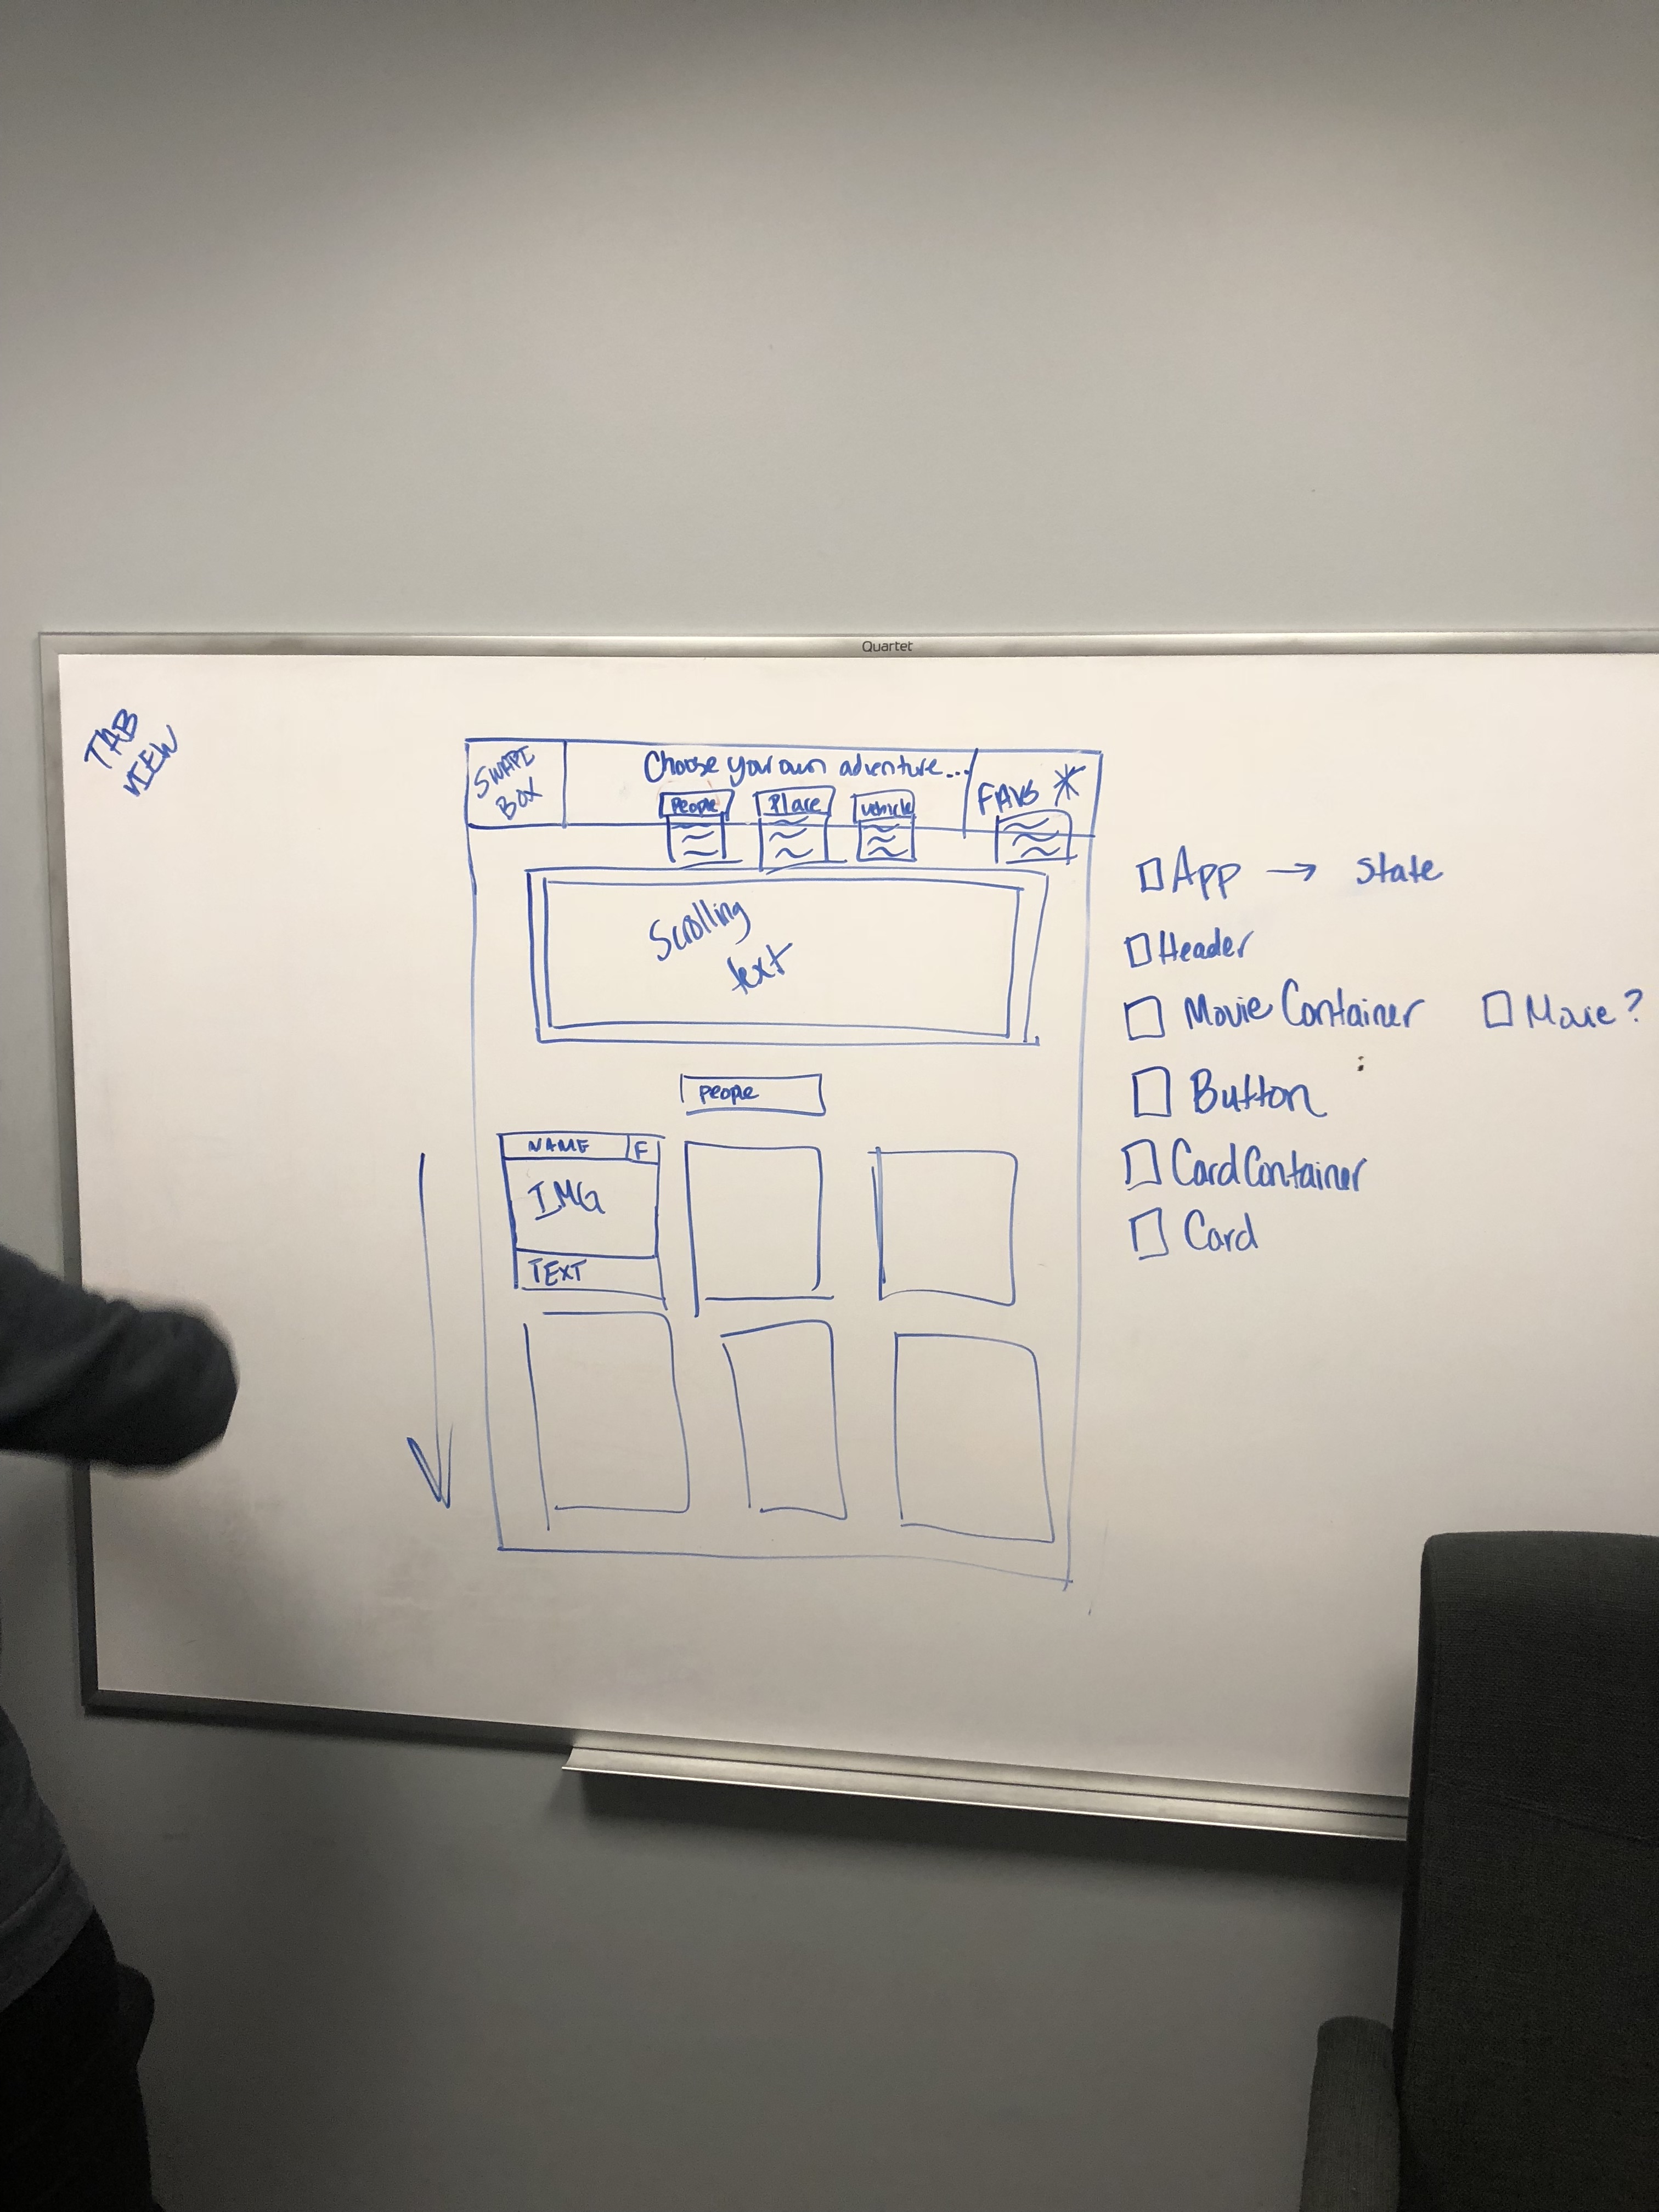 Quartet
TAB
VIEW
SWAPI
BOX
Choose your own adventure...
People
Place
Vehicle
FAVS *
Scrolling
text
people
NAME
F
IMG
TEXT
App → state
Header
Movie Container
Movie?
Button
CardContainer
Card